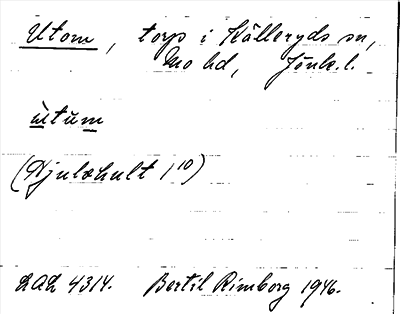 Utom, torp i Kålleryds sn,
Mo hd, Jönk. l.
ùtùm
(Hjulahult 1¹⁰)
LAL 4314. Bertil Rimborg 1946.